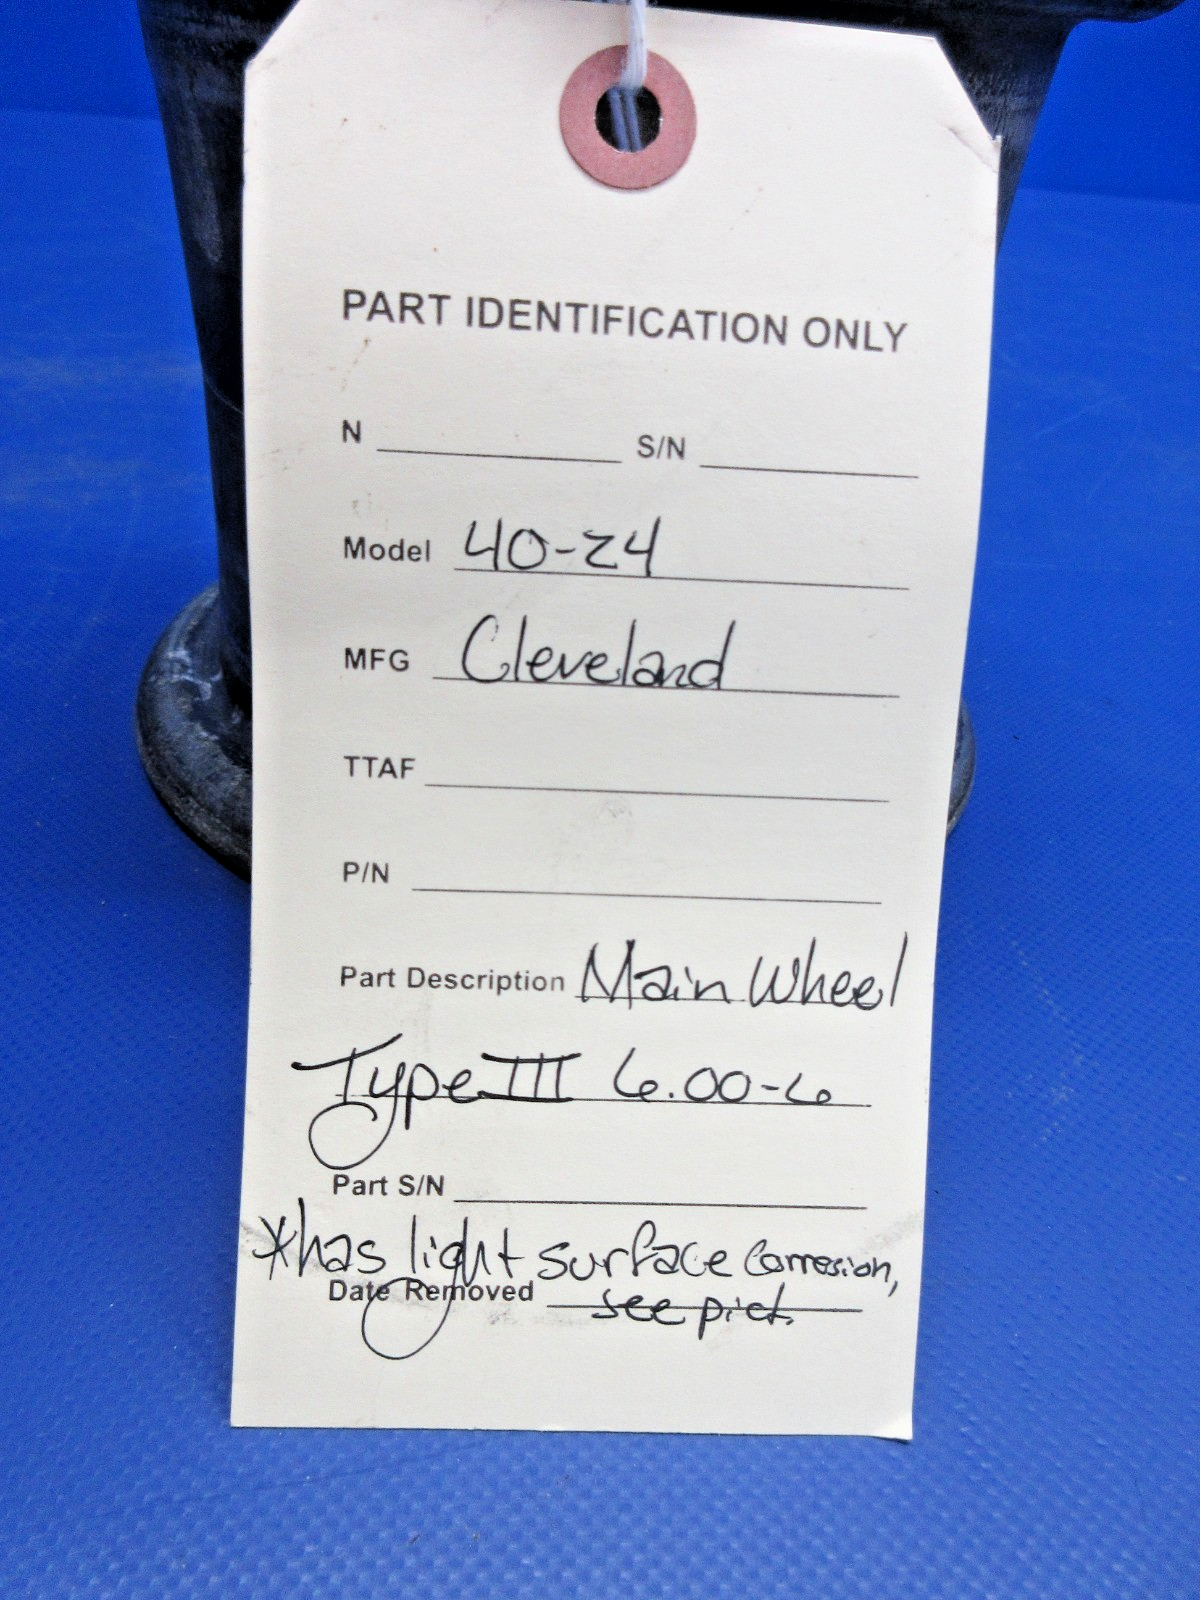 PART IDENTIFICATION ONLY
N S/N
Model 40-24
MFG Cleveland
TTAF
P/N
Part Description Main Wheel
Type III 6.00-6
Part S/N
*has light surface Corresion,
Date Removed see pict.